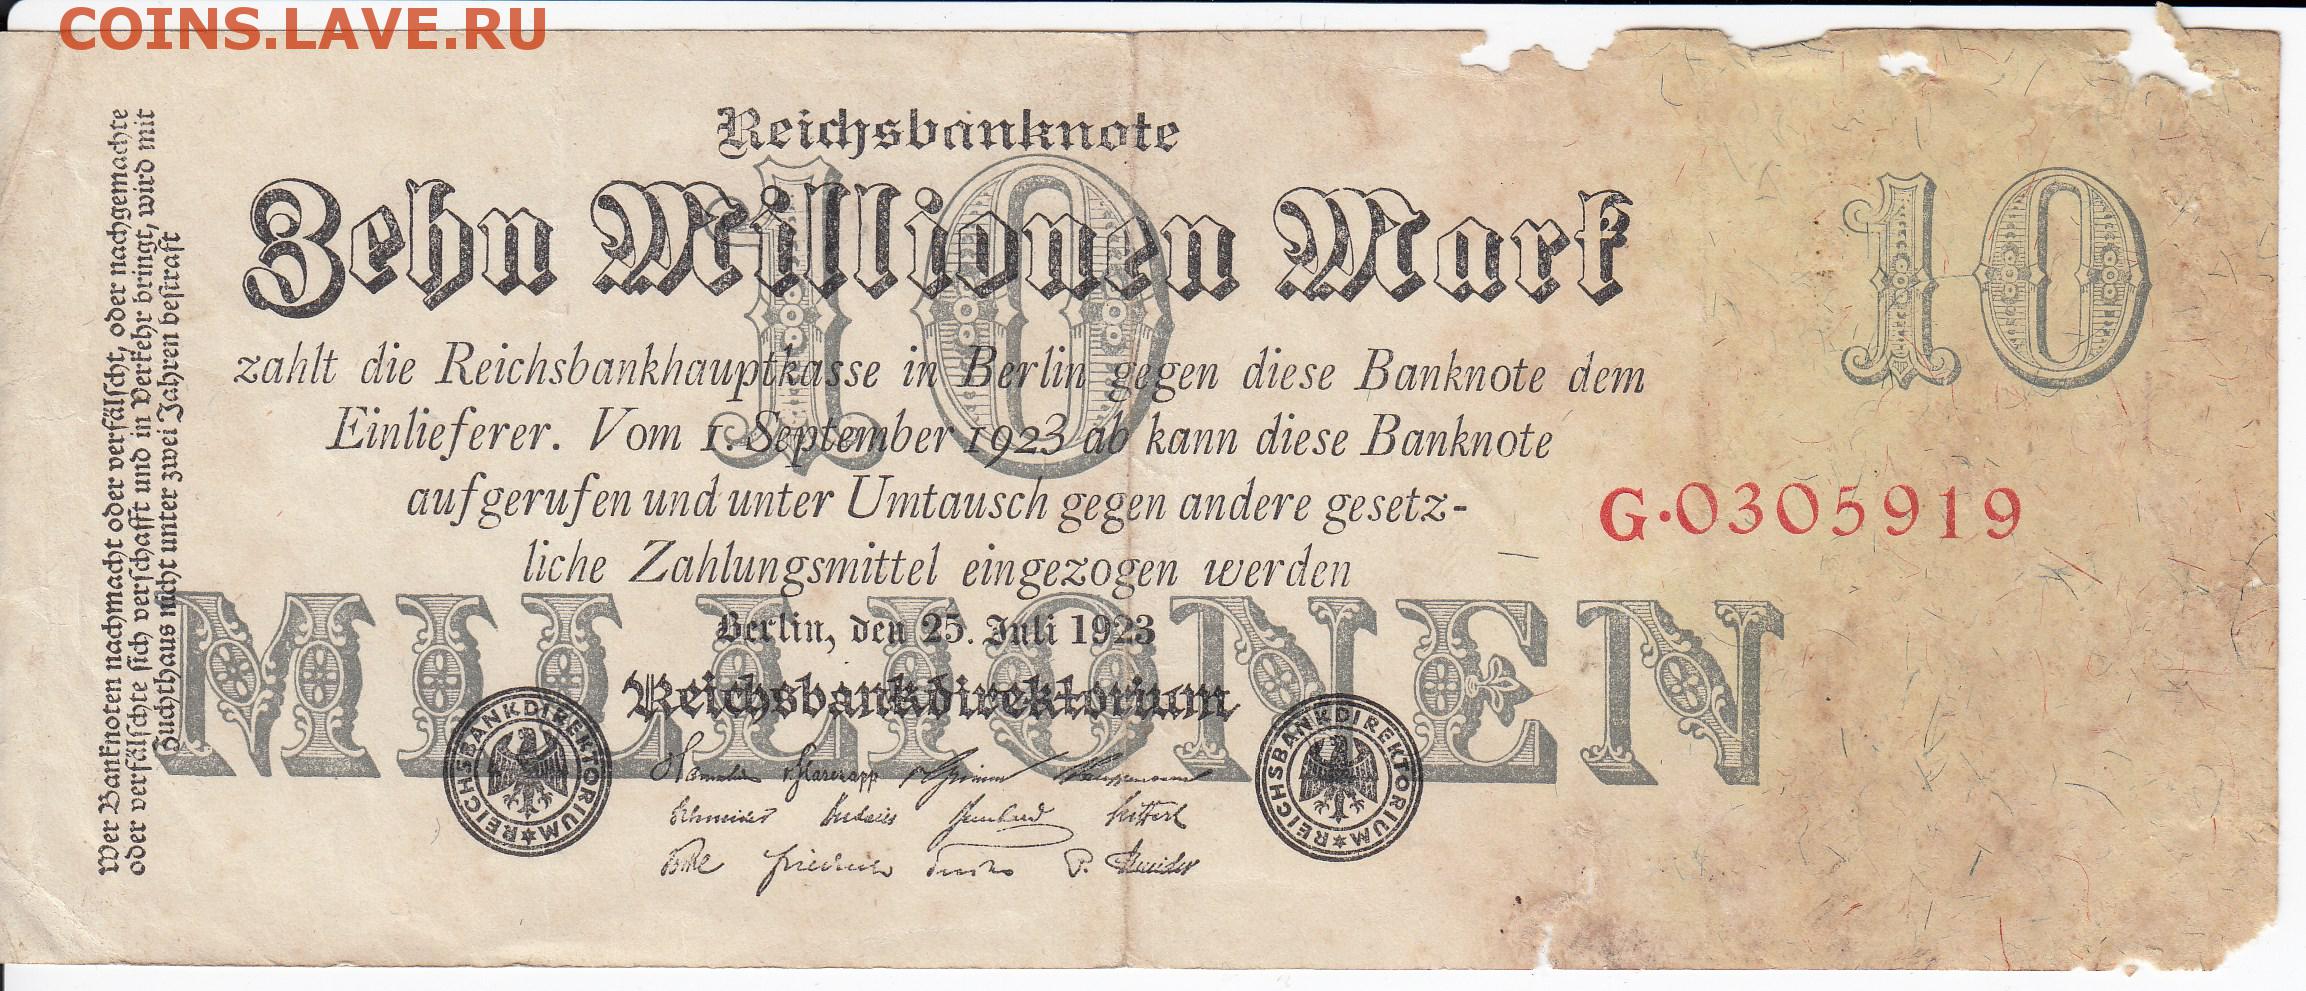 COINS.LAVE.RU
Reichsbanknote
10
Zehn Millionen Mark
10
zahlt die Reichsbankhauptkasse in Berlin gegen diese Banknote dem
Einlieferer. Vom 1. September 1923 ab kann diese Banknote
aufgerufen und unter Umtausch gegen andere gesetz-
liche Zahlungsmittel eingezogen werden
G·0305919
MILLIONEN
Berlin, den 25. Juli 1923
Reichsbankdirektorium
REICHSBANKDIREKTORIUM
REICHSBANKDIREKTORIUM
Wer Banknoten nachmacht oder verfälscht, oder nachgemachte
oder verfälschte sich verschafft und in Verkehr bringt, wird mit
Zuchthaus nicht unter zwei Jahren bestraft